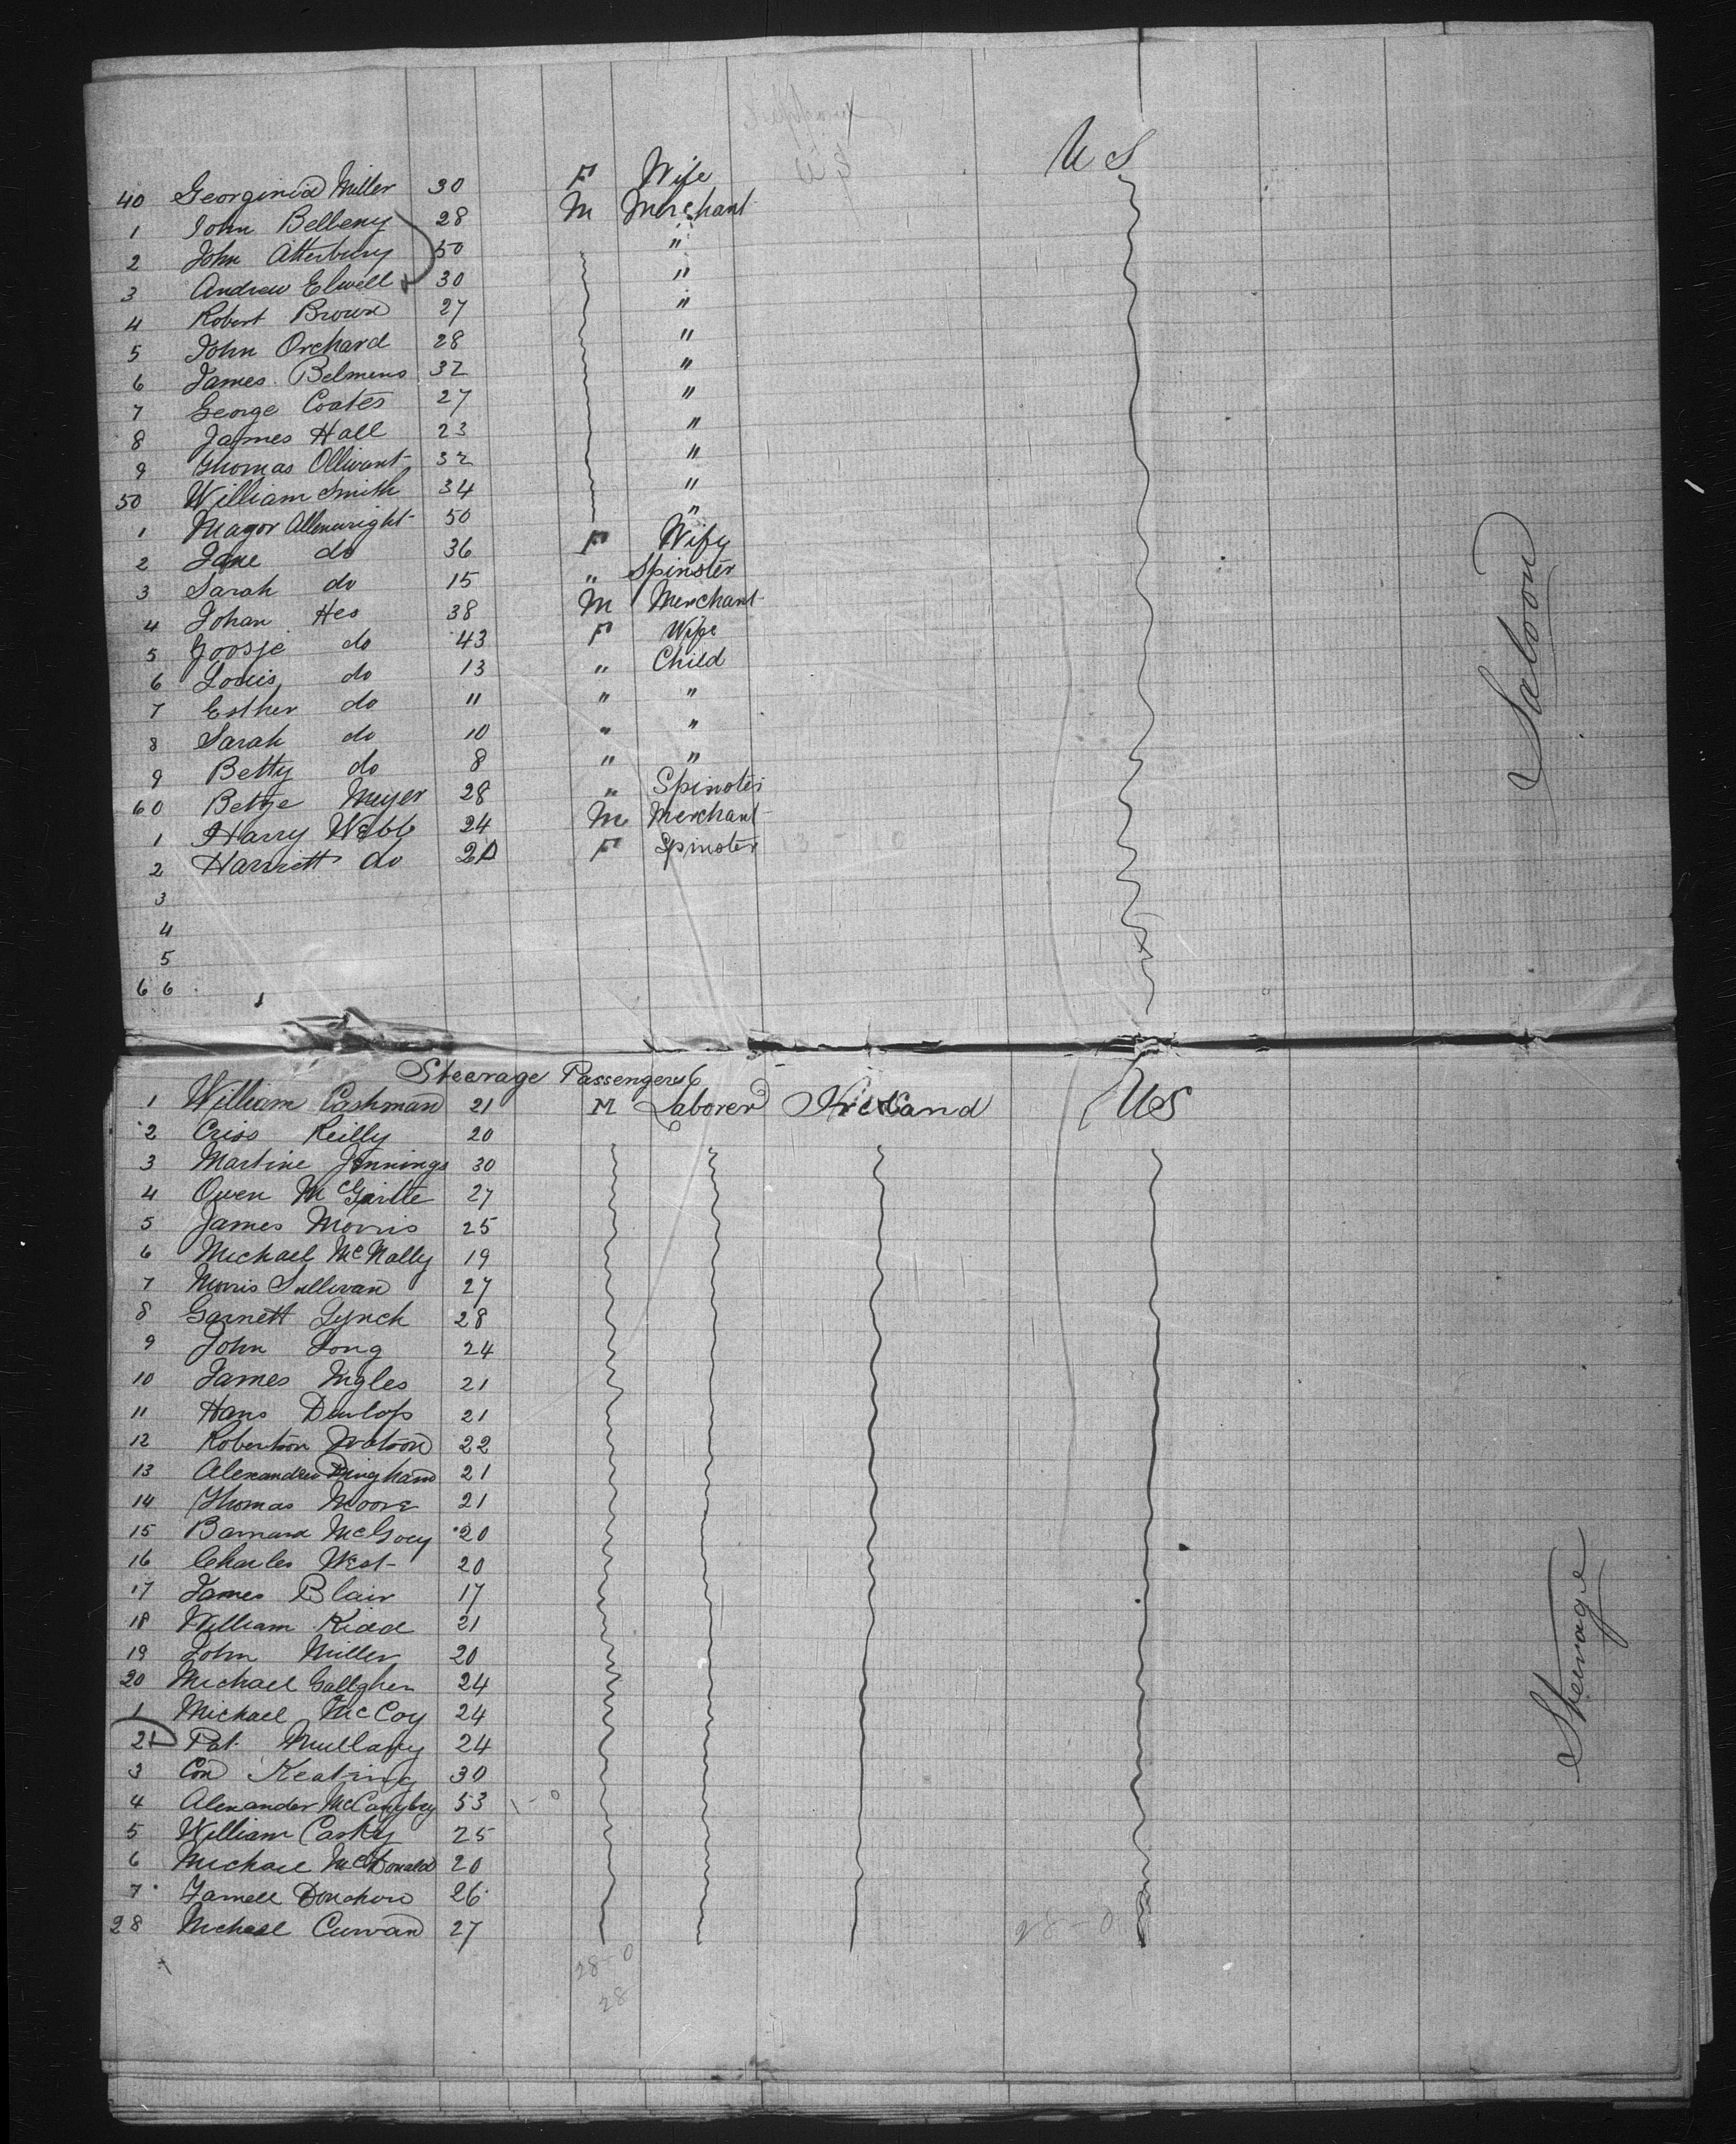 U S
40 Georginia Miller 30 F Wife
1 John Belleny 28 M Merchant
2 John Atterbury 50 "
3 Andrew Elwell 30 "
4 Robert Brown 27 "
5 John Orchard 28 "
6 James Belmens 32 "
7 George Coates 27 "
8 James Hall 23 "
9 Thomas Ollivant 32 "
50 William Smith 34 "
1 Magor Allenwright 50 "
2 Jane do 36 F Wify
3 Sarah do 15 " Spinster
4 Johan Hes 38 M Merchant
5 Goosje do 43 F Wife
6 Louis do 13 " Child
7 Esther do 11 " "
8 Sarah do 10 " "
9 Betty do 8 " "
60 Betje Meyer 28 " Spinster
1 Harry Webb 24 M Merchant
2 Harriett do 20 F Spinster
3
4
5
66
Saloon
Steerage Passengers
1 William Cashman 21 M Laborer Ireland US
2 Criss Reilly 20
3 Martine Jennings 30
4 Owen 27
5 James Morris 25
6 Michael McNally 19
7 Morris Sullivan 27
8 Garnett Lynch 28
9 John Long 24
10 James Ingles 21
11 Hans Dunlop 21
12 Robertson Watson 22
13 Alexander Bingham 21
14 Thomas Moore 21
15 Barnard McGoey 20
16 Charles West 20
17 James Blair 17
18 William Kidd 21
19 John Miller 20
20 Michael Gallgher 24
1 Michael McCoy 24
2 Pat. Mullany 24
3 Con Keating 30
4 Alexander 53
5 William Casky 25
6 Michael McDonald 20
7 Donohoe 26
28 Michael Curvan 27
28-0
28
28-0
Steerage